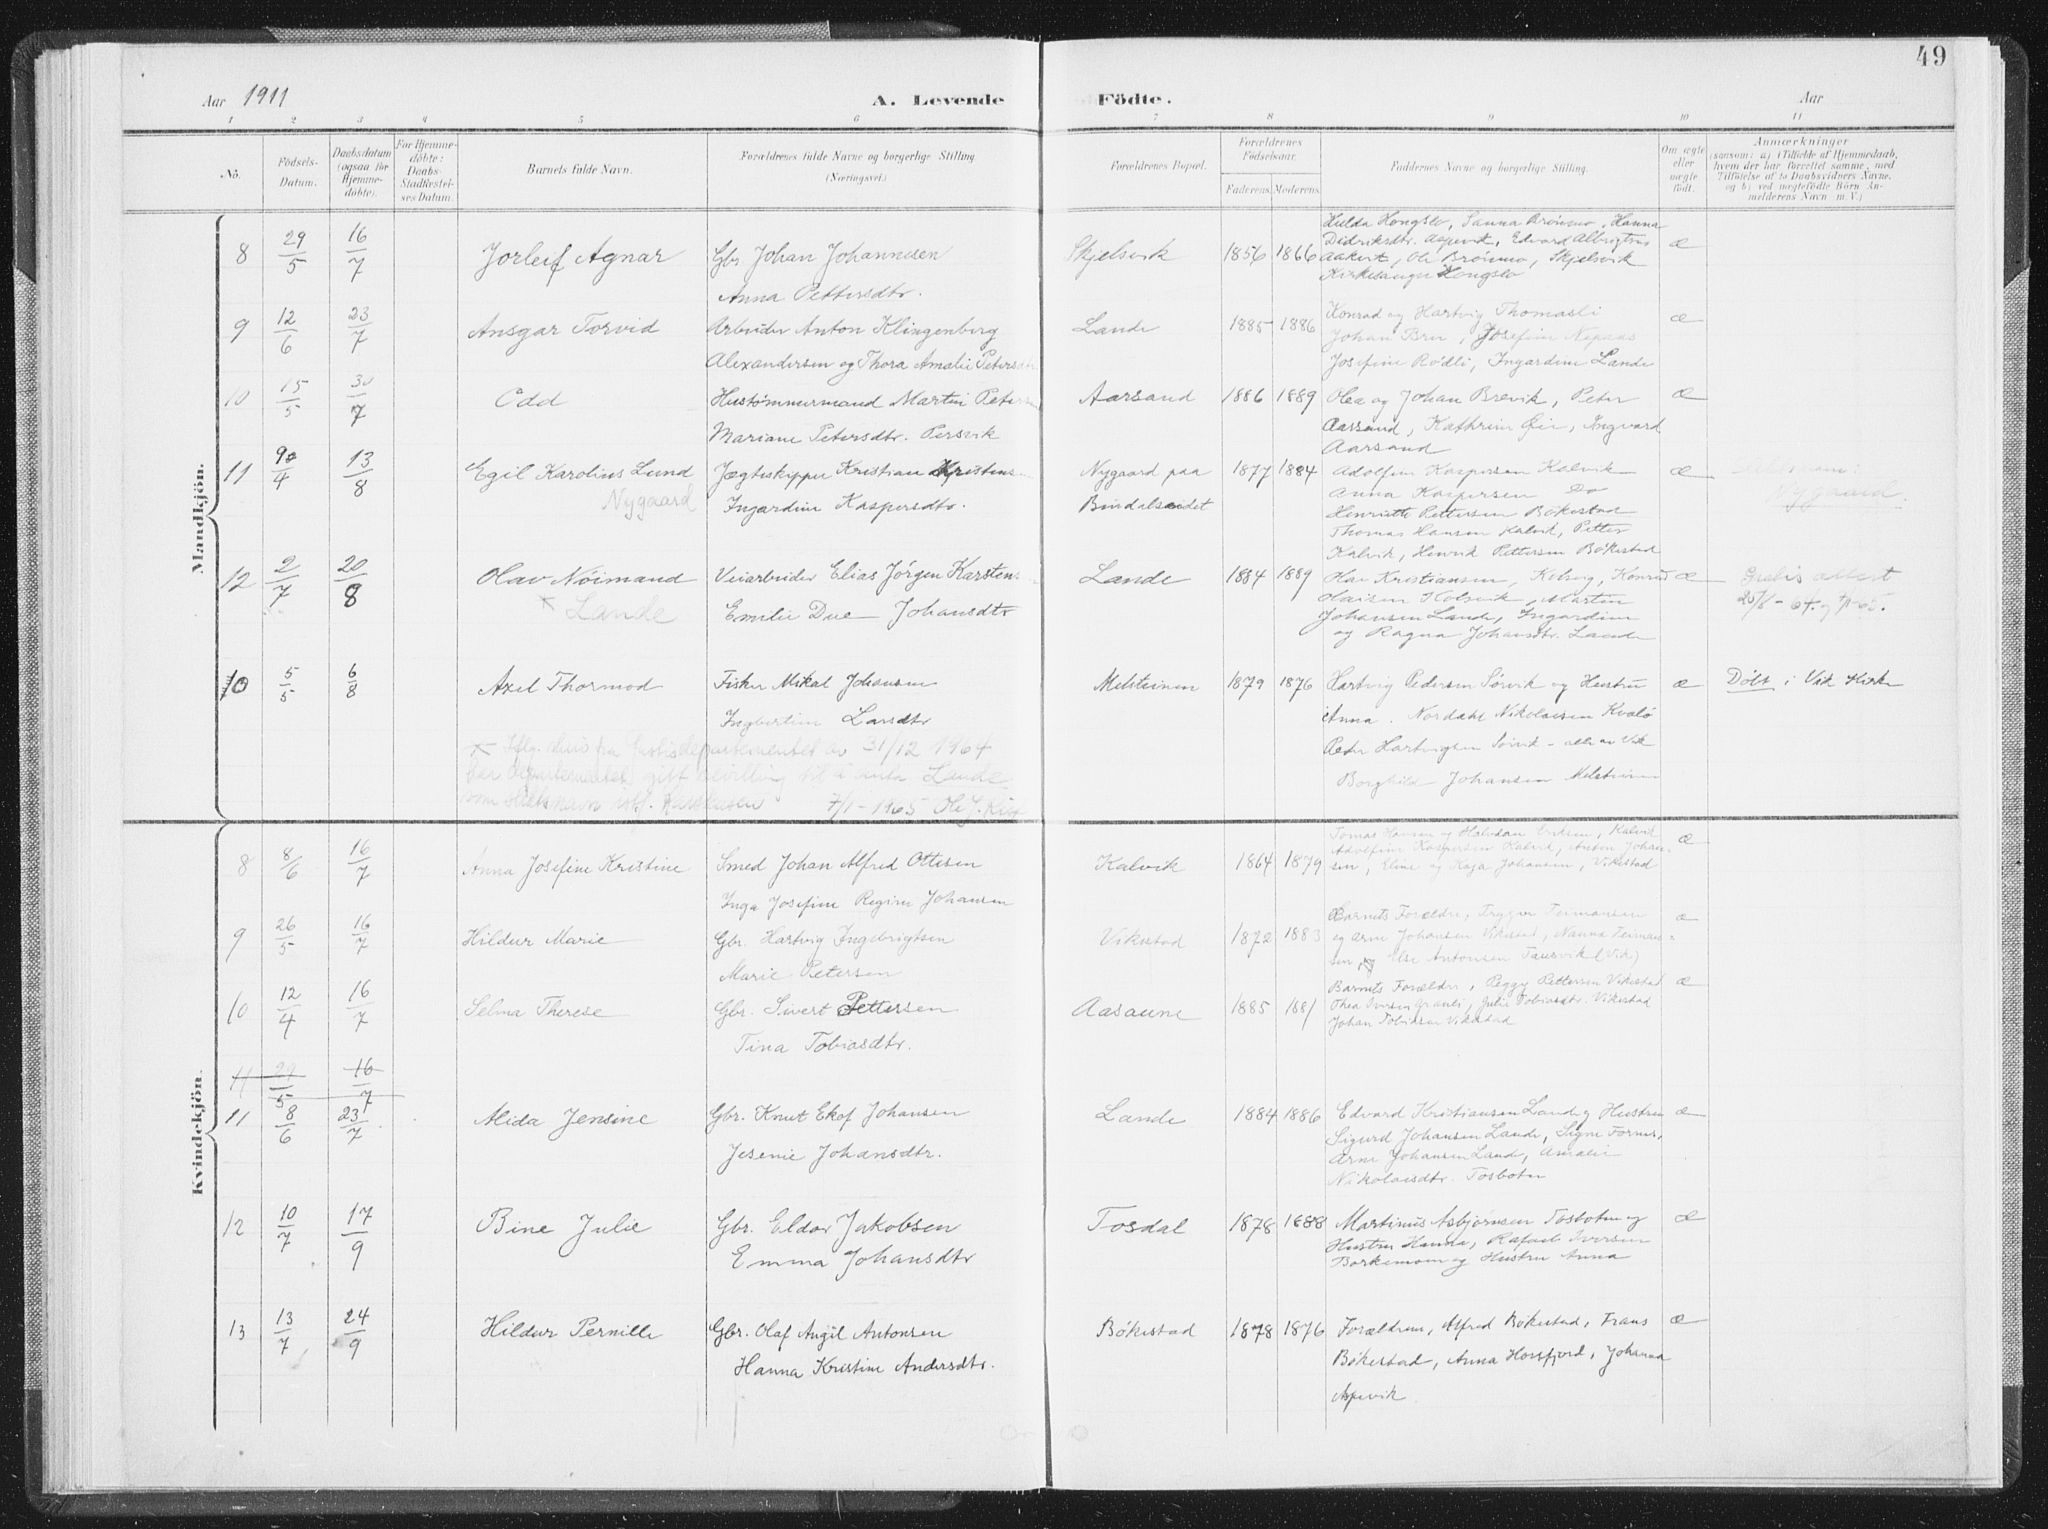 49
Aar 1911
A. Levende Födte.
Aar
1 2 3 4 5 6 7 8 9 10 11
No.
Födsels-Datum.
Daabsdatum (ogsaa for Hjemme-döbte).
For Hjemme-döbte: Daabs-Stadfæstel-ses Datum.
Barnets fulde Navn.
Forældrenes fulde Navne og borgerlige Stilling. (Næringsvei.)
Forældrenes Bopæl.
Forældrenes Födselsaar.
Faderens. Moderens.
Faddernes Navne og borgerlige Stilling.
Om ægte eller uægte födt.
Anmærkninger
(saasom: a) i Tilfælde af Hjemmedaab, hvem der har forrettet samme, med Tilföielse af to Daabsvidners Navne, og b) ved uægtefödte Börn An-melderens Navn m. V.)
Mandkjön.
8 29/5 16/7 Jorleif Agnar Gbr Johan Johannesen Skjelsvik 1856 1866 Hilda Hongslo, Sanna Brönmo, Hanna
Didriksdtr. Aspevik, Edvard Albrigtsen æ
Aakvik, Ole Brönmo, Skjelsvik
Kirkesanger Hongslo
Anna Pettersdtr.
9 12/6 23/7 Ansgar Torvid Arbeider Anton Klingenberg Lande 1885 1886 Konrad og Hartvig Thomasli æ
Johan Bru, Josefine Nepaas
Alexandersen og Thora Amalie Petersdtr Josefine Rödli, Ingardine Lande
10 15/5 30/7 Odd Hustömmermand Martin Petersen Aarsand 1886 1889 Olea og Johan Brevik, Peter æ
Mariane Petersdtr. Persvik Aarsand, Kathrine Öir, Ingvard
Aarsand
11 90/4 13/8 Egil Karolius Lund Jægtiskipper Kristian Kristens Nygaard paa 1877 1884 Adolfine Kaspersen Kalvik æ
Nygaard Ingardine Kaspersdtr. Bindalseidet Anna Kaspersen Do
Nygaard.
Henriette Pettersen Bökestad
Thomas Hansen Kalvik, Petter
Kalvik, Henrik Pettersen Bökestad
12 2/7 20/8 Olav Nöimand Veiarbeider Elias Jörgen Karstens Lande 1884 1889 Olav Kristiansen, Kolvig, Konrad æ
Lande Emilie Due Johansdtr Olaisen Holsvik, Martin
Johansen Lande, Ingardine
og Ragna Johansdtr. Lande
10 5/5 6/8 Axel Thormod Fisker Mikal Johansen Melsteinen 1879 1876 Hartvig Pedersen Sörvik og Hustru æ Döbt i Vik Kirke
Ingbertine Larsdtr Anna. Nordahl Nikolaisen Kvalö
Peter Hartvigsen Sörvik - alle av Vik
Borghild Johansen Melsteinen
Iflg. skriv fra Justisdepartementet av 31/12 1964
har departementet gitt bevilling til å anta Lande
som slektsnavn istf. Karstensen 7/1-1965 Ole J.
Kvindekjön.
8 8/6 16/7 Anna Josefine Kristine Smed Johan Alfred Ottesen Kalvik 1864 1879 Tomas Hansen og Halvdan Eriksen, Kalvik æ
Adolfine Kaspersen Kalvik, Anton Johan-
sen, Eline og Kaja Johansen, Vikestad
Inga Josefine Regine Johansen
9 26/5 16/7 Hildur Marie Gbr. Hartvig Ingebrigtsen Vikestad 1872 1883 Barnets Forældre, Trygve Teimansen æ
og Arne Johansen Vikestad, Nanna Teiman-
Marie Petersen sen, og Else Antonsen Tausvik (Vik)
10 12/4 16/7 Selma Therese Gbr. Sivert Pettersen Aasaune 1885 1881 Barnets Forældre, Peggy Pettersen Vikestad æ
Thea Iversen Granli, Julie Tobiasdtr. Vikestad
Johan Tobiasen Vikestad
Tina Tobiasdtr.
11 29/5 16/7
11 8/6 23/7 Alida Jensine Gbr. Knut Ekof Johansen Lande 1884 1886 Edvard Kristiansen Lande og Hustru æ
Sigurd Johansen Lande, Signe Fornes,
Jesenie Johansdtr. Arne Johansen Lande, Amalie
Nikolaisdtr. Tosbotn
12 10/7 17/9 Bine Julie Gbr. Eldor Jakobsen Tosdal 1878 1888 Martinus Asbjörnsen Tosbotn og æ
Hustru Hanna, Rafael Iversen
Emma Johansdtr Borkemoen og Hustru Anna
13 13/7 24/9 Hildur Pernille Gbr. Olaf Angil Antonsen Bökestad 1878 1876 Forældrene, Alfred Bökestad, Frans æ
Hanna Kristine Andersdtr. Bökestad, Anna Horsfjord, Johanna
Aspevik